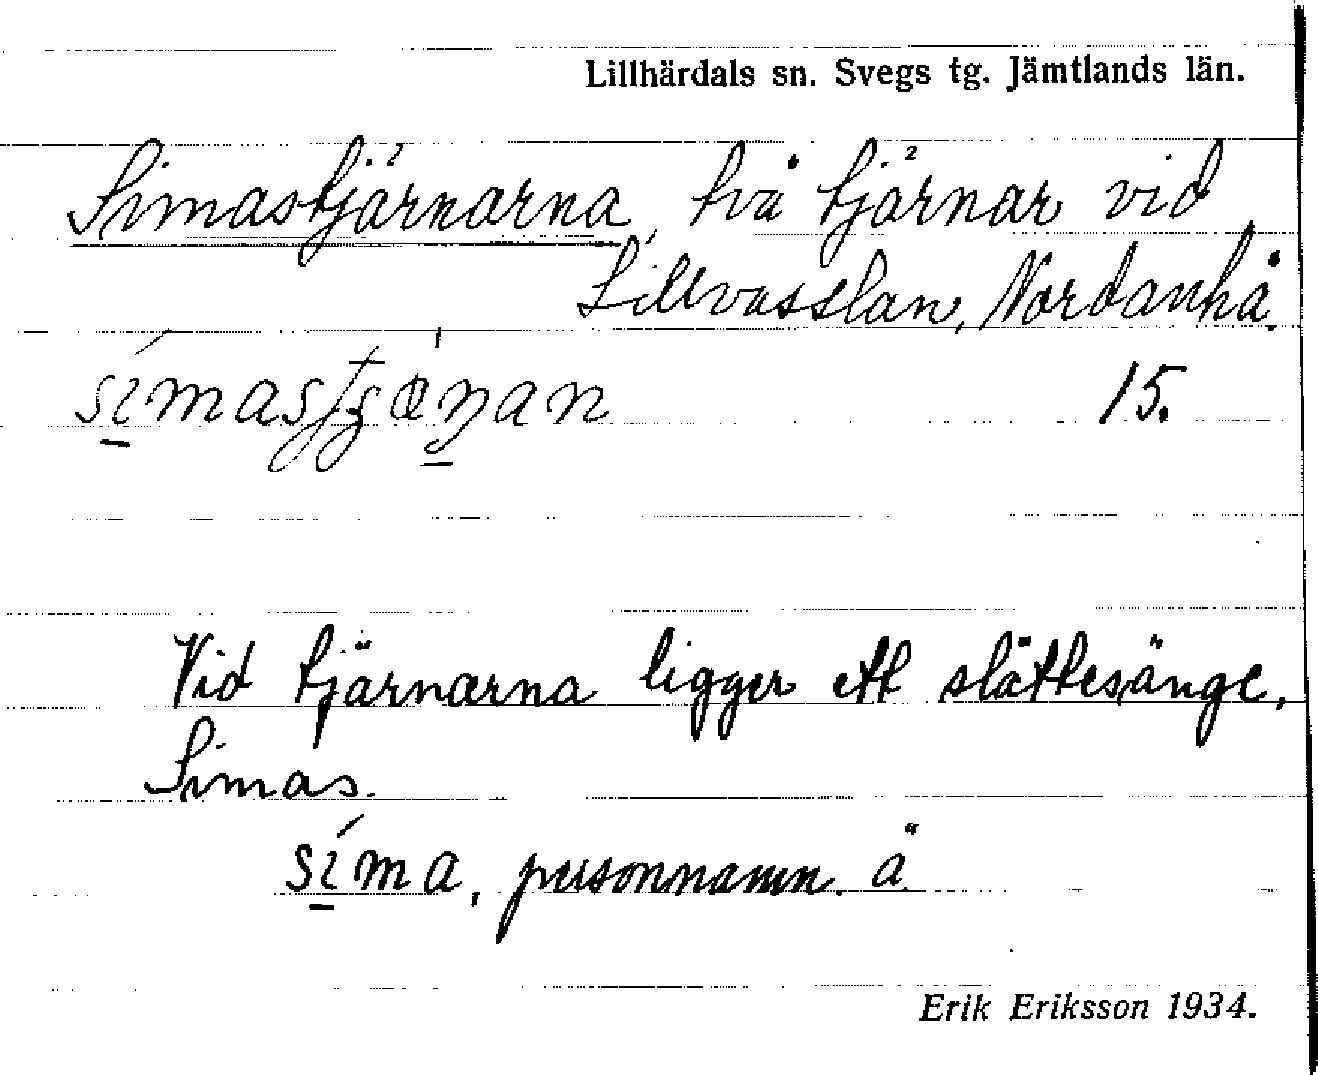 Lillhärdals sn. Svegs tg. Jämtlands län.
Simastjärnarna, två tjärnar vid
Lillvasslan, Nordanhå.
15.
Vid tjärnarna ligger ett slåttesänge,
Simas.
sima, personnamn. ä
Erik Eriksson 1934.